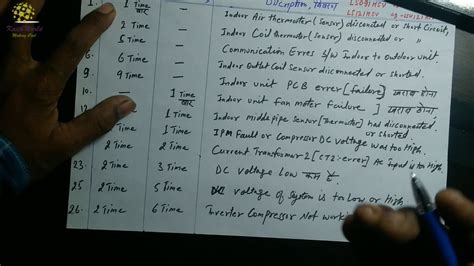 Kesh World
Making Cool
Description, विवरण LS091HSV
1. 1 Time — Indoor Air thermoster (Sensor) disconnected or short Circuit,
बार LS121HSV
2 Time — Indoor Coil thermoster (sensor) disconnected or "
5 Time — Communication Erres b/w Indoor to outdoor unit.
6 Time — Indoor Outlet Coil Sensor disconnected or shorted.
9. 9 Time — Indoor unit PCB error [failure] खराब होना
10 — 1 Time Indoor unit fan motor failure ] खराब होना
बार
12 1 Time Indoor middle pipe Sensor [thermoster] has disconnected
or shorted.
1 Time 1 Time IPM Fault or Compressor DC voltage was too High.
2 Time 2 Time Current Transformer-2 [CT2-error] AC Input is too High.
23. 2 Time 3 Time DC voltage Low कम है
25 2 Time 5 Time voltage of System is too Low or High.
26. 2 Time 6 Time Inverter Compressor Not working